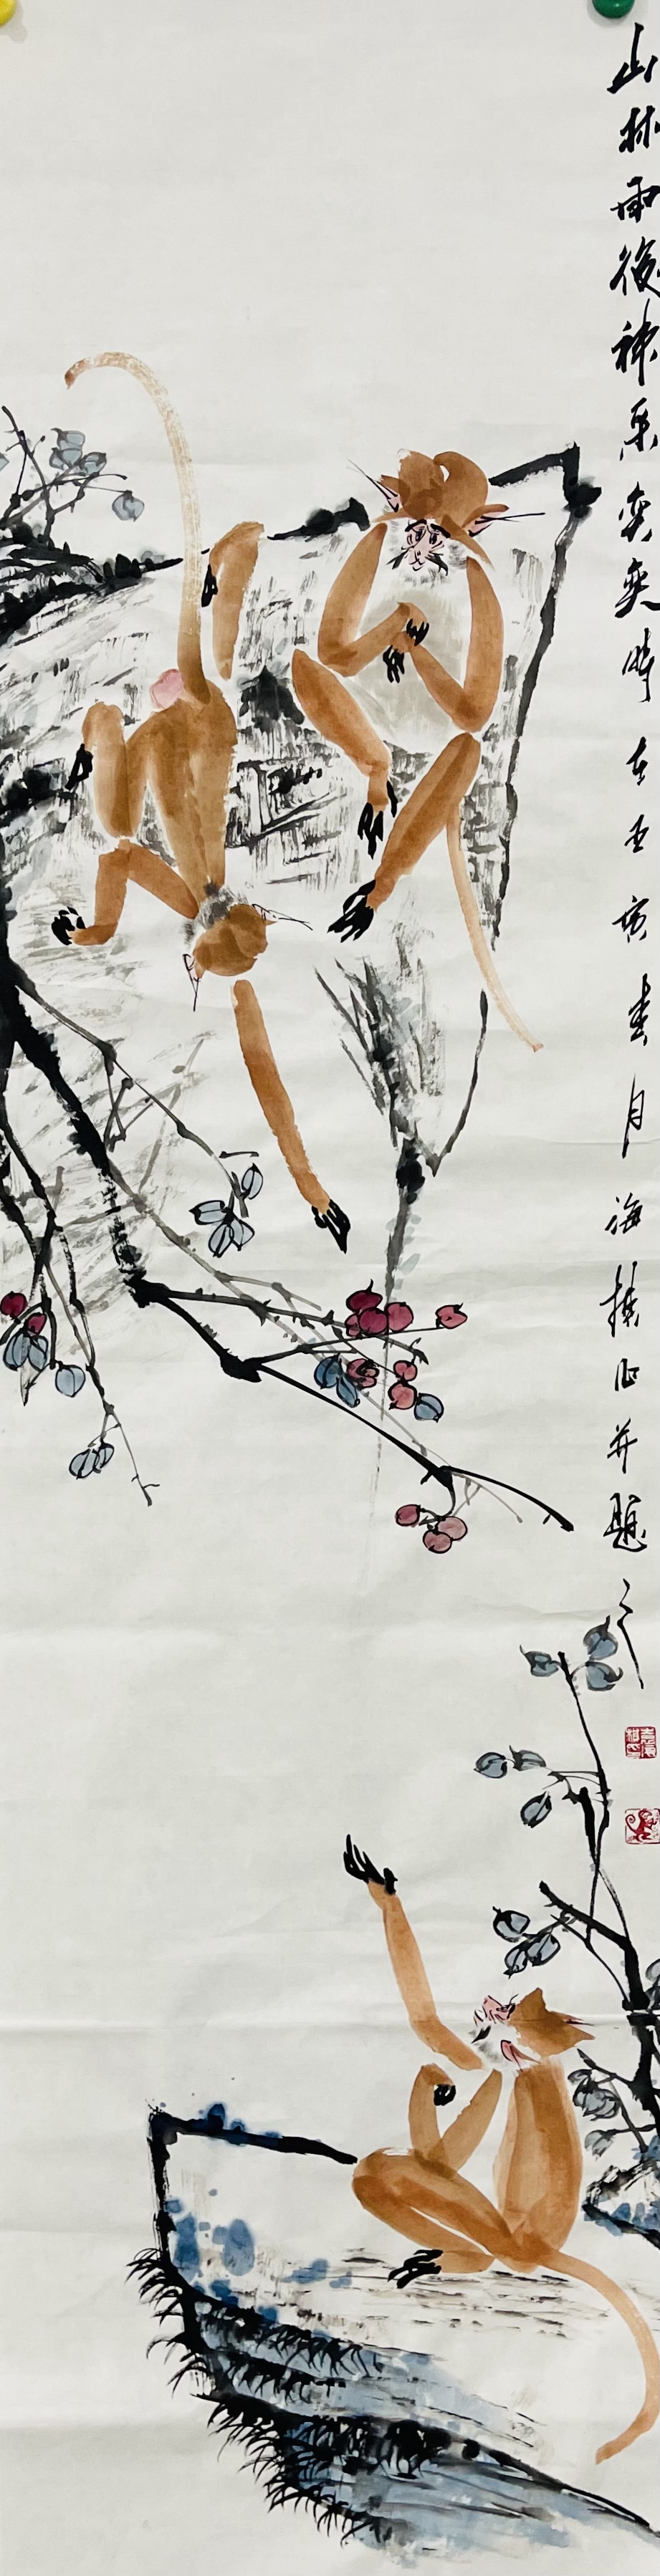 山林雨後神采奕奕時在壬寅春月海樵作并題之